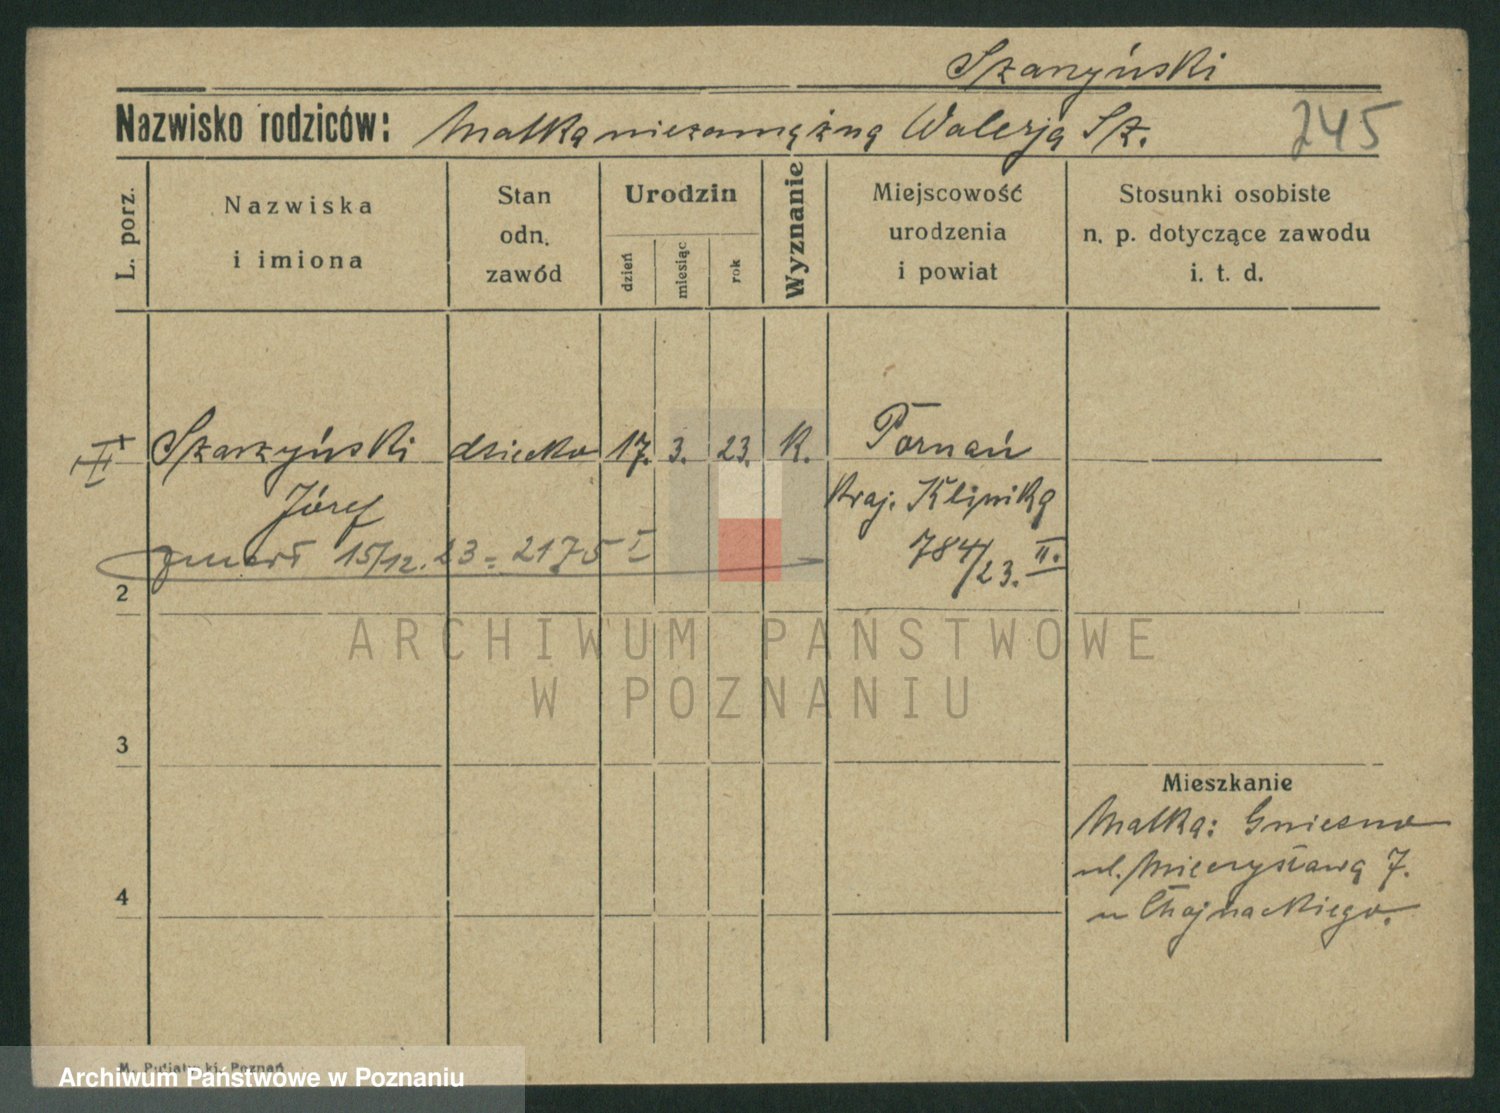 Szarzyński
Nazwisko rodziców: Matka niezamężna Walerja Sz.
245
L. porz.
Nazwiska
i imiona
Stan
odn.
zawód
Urodzin
dzień
miesiąc
rok
Wyznanie
Miejscowość
urodzenia
i powiat
Stosunki osobiste
n. p. dotyczące zawodu
i. t. d.
Szarzyński dziecko 17. 3. 23. K. Poznań
Józef
Kraj. Klinika
784/23. II.
zmarł 15/12. 23 = 2175 I
2
ARCHIWUM PAŃSTWOWE
W POZNANIU
3
Mieszkanie
Matka: Gniezno
ul. Mieczysława 7.
u Chojnackiego.
4
Poznań
Archiwum Państwowe w Poznaniu